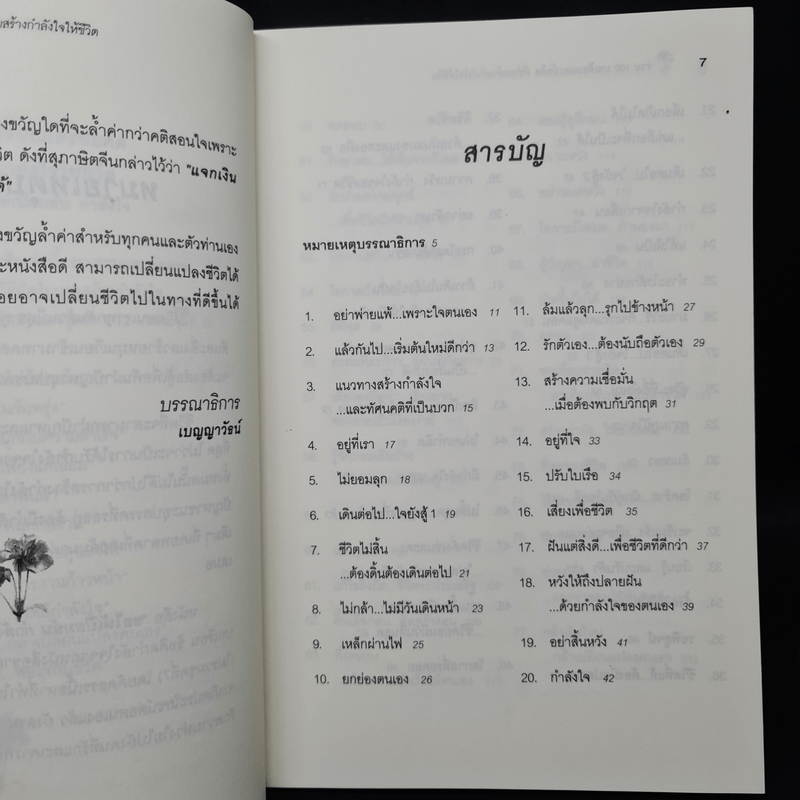 สร้างกำลังใจให้ชีวิต
งขวัญใดที่จะล้ำค่ากว่าคติสอนใจเพราะ
วิต ดังที่สุภาษิตจีนกล่าวไว้ว่า "แจกเงิน
งขวัญล้ำค่าสำหรับทุกคนและตัวท่านเอง
ะหนังสือดี สามารถเปลี่ยนแปลงชีวิตได้
อยอาจเปลี่ยนชีวิตไปในทางที่ดีขึ้นได้
บรรณาธิการ
เบญญาวัธน์
7
สารบัญ
หมายเหตุบรรณาธิการ 5
1. อย่าพ่ายแพ้...เพราะใจตนเอง 11
2. แล้วกันไป...เริ่มต้นใหม่ดีกว่า 13
3. แนวทางสร้างกำลังใจ
...และทัศนคติที่เป็นบวก 15
4. อยู่ที่เรา 17
5. ไม่ยอมลุก 18
6. เดินต่อไป...ใจยังสู้ 1 19
7. ชีวิตไม่สิ้น
...ต้องดิ้นต้องเดินต่อไป 21
8. ไม่กล้า...ไม่มีวันเดินหน้า 23
9. เหล็กผ่านไฟ 25
10. ยกย่องตนเอง 26
11. ล้มแล้วลุก...รุกไปข้างหน้า 27
12. รักตัวเอง...ต้องนับถือตัวเอง 29
13. สร้างความเชื่อมั่น
...เมื่อต้องพบกับวิกฤต 31
14. อยู่ที่ใจ 33
15. ปรับใบเรือ 34
16. เสี่ยงเพื่อชีวิต 35
17. ฝันแต่สิ่งดี...เพื่อชีวิตที่ดีกว่า 37
18. หวังให้ถึงปลายฝัน
...ด้วยกำลังใจของตนเอง 39
19. อย่าสิ้นหวัง 41
20. กำลังใจ 42